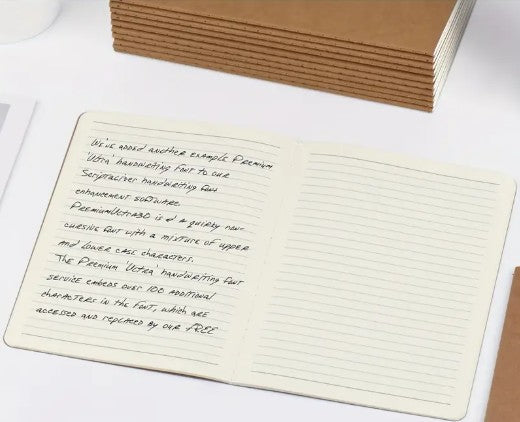 We've added another example Premium
'Ultra' handwriting font to our
Scriptalizer handwriting font
enhancement software.
PremiumUltra30 is a quirky non-
cursive font with a mixture of upper
and lower case characters.
The Premium 'Ultra' handwriting font
service embeds over 100 additional
characters in the font, which are
accessed and replaced by our FREE